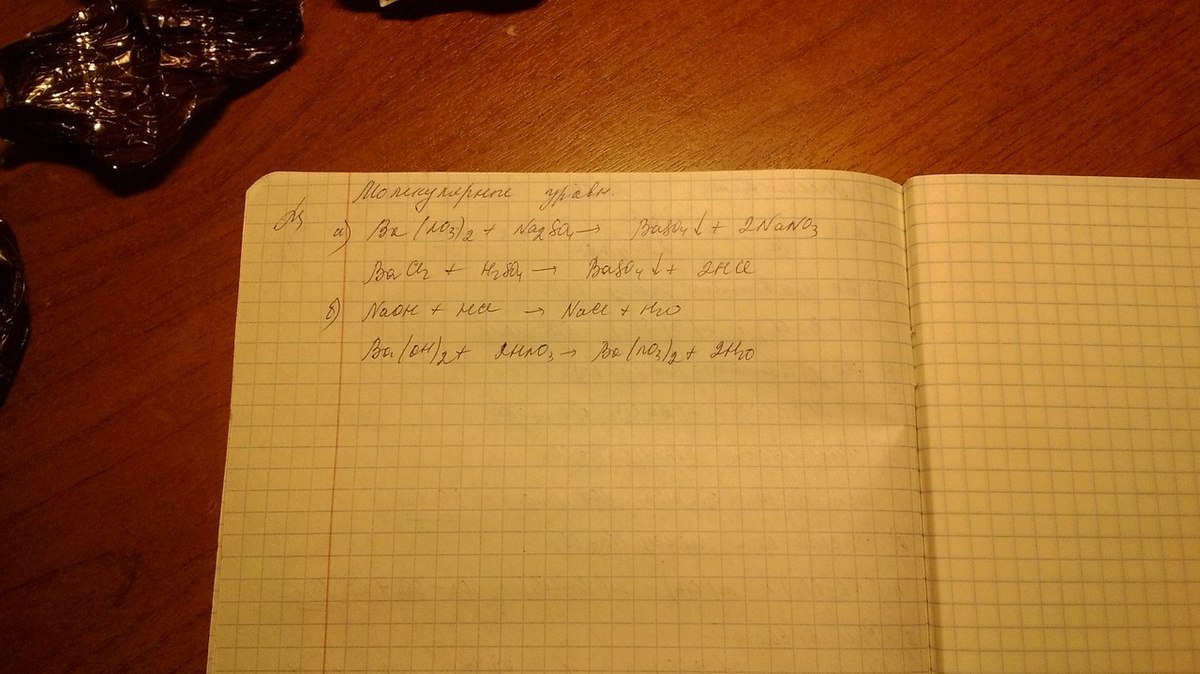 Молекулярные уравн.
а) Ba(NO3)2 + Na2SO4 → BaSO4↓ + 2NaNO3
BaCl2 + H2SO4 → BaSO4↓ + 2HCl
б) NaOH + HCl → NaCl + H2O
Ba(OH)2 + 2HNO3 → Ba(NO3)2 + 2H2O